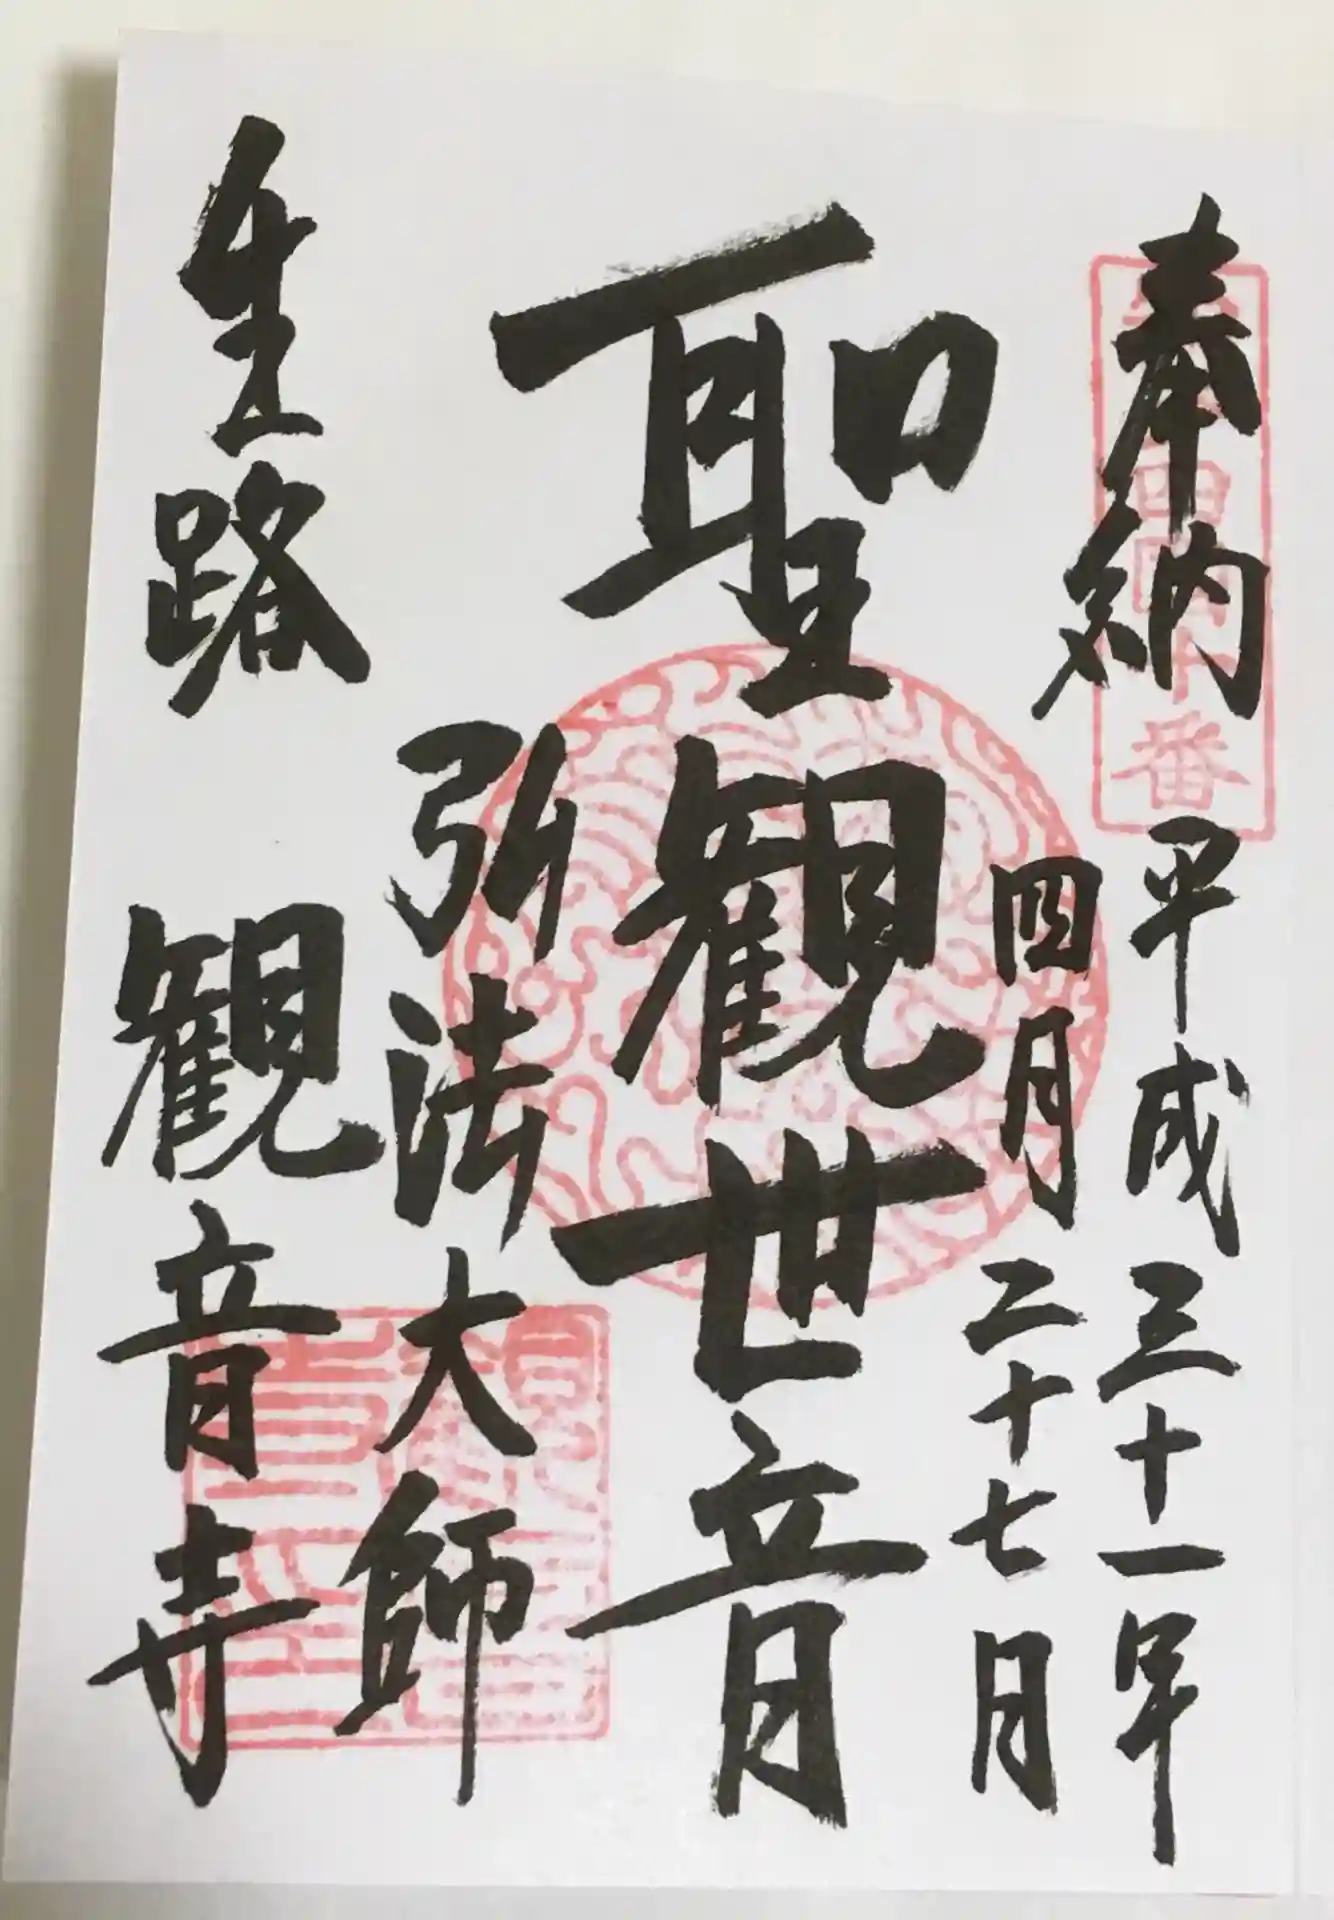 奉納
平成三十一年
四月二十七日
聖観世音
弘法大師
生路
観音寺